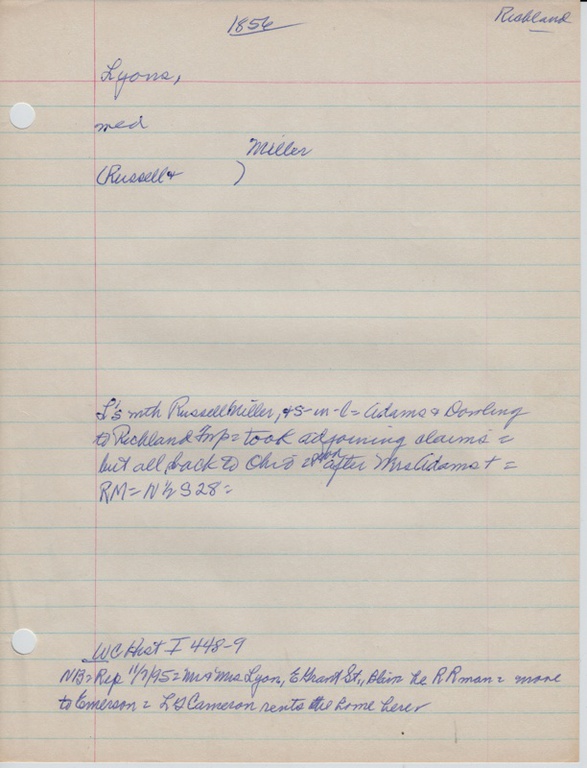 1856
Richland
Lyons,
med
Miller
(Russell + )
L's with Russell Miller, + S-in-l = Adams + Dowling
to Richland Tmp = took adjoining claims =
but all back to Ohio = after Mrs Adams + =
RM = N½ S28 =
WC Hist I 448-9
NB = Rep 11/7/95 = Mr + Mrs Lyon, E Grant St., he RR man = move
to Emerson = L G Cameron rents the home here